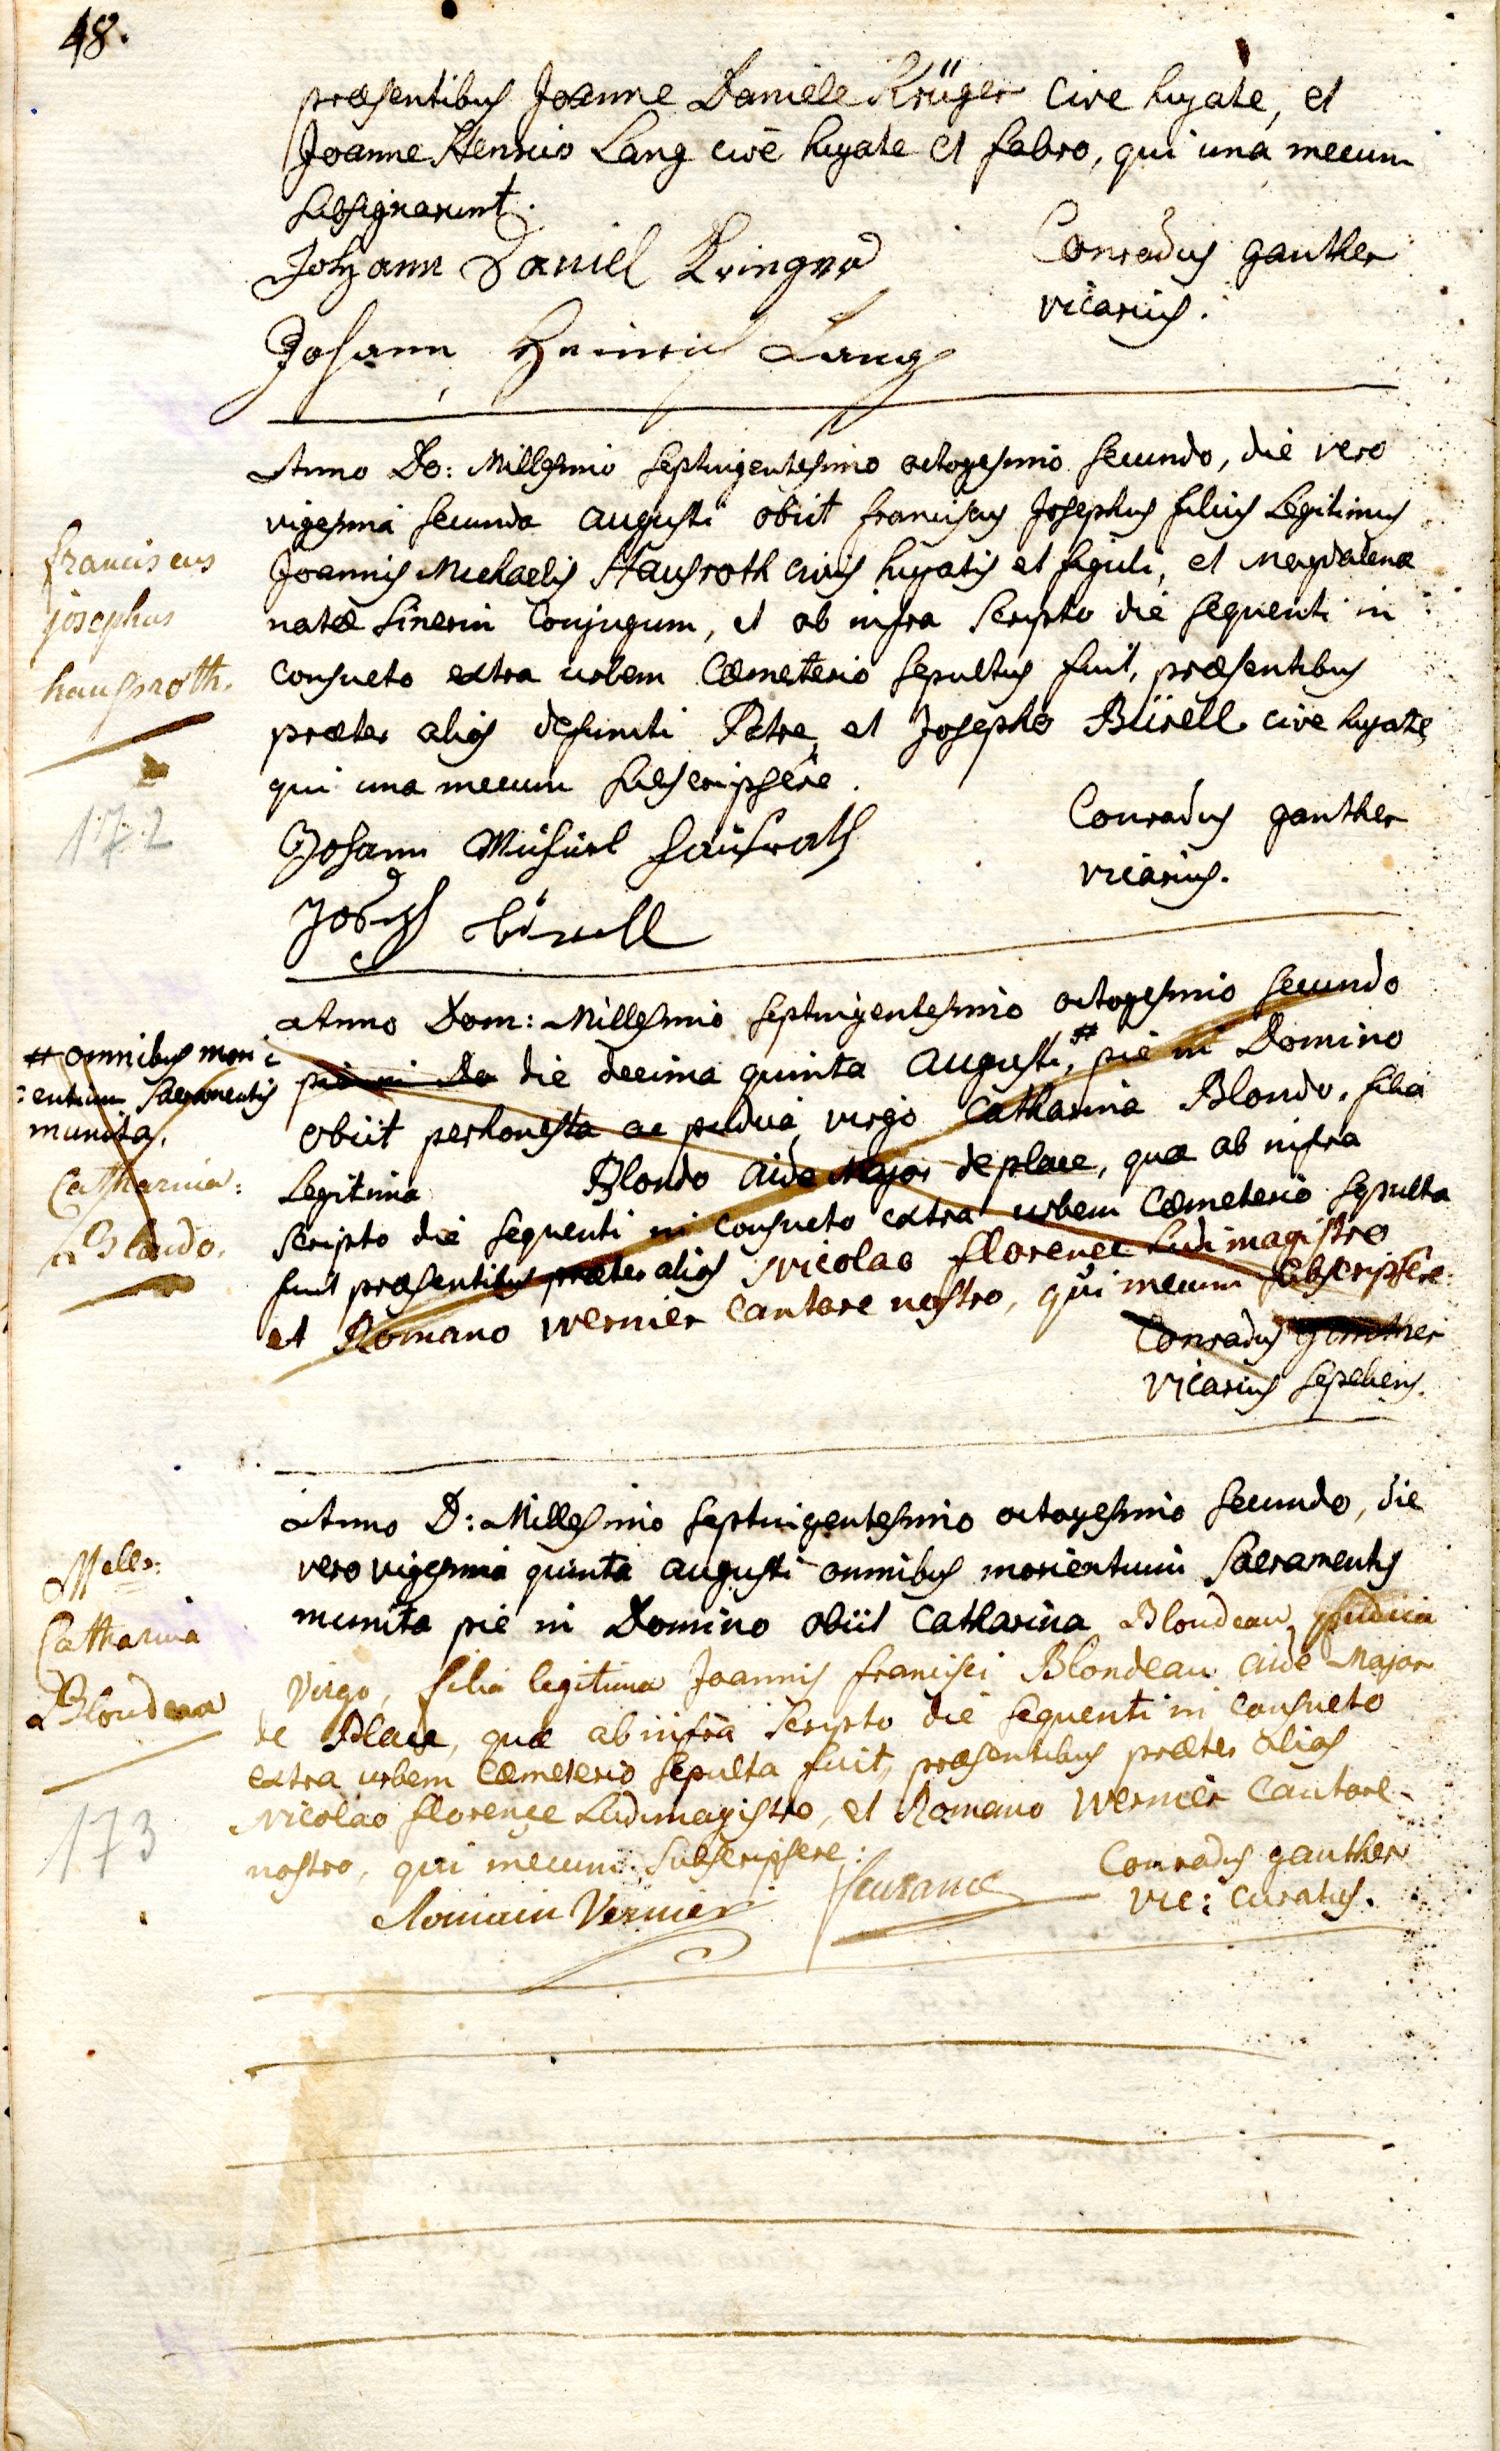 48.
præsentibus Joanne Daniele Krüger cive hujate, et
Joanne Henrico Lang cive hujate et fabro, qui una mecum
subsignarunt.
Johann Daniel
Conradus ganther
vicarius.
Johann Heinrich Lang
Anno Do: Millesimo septingentesimo octogesimo secundo, die vero
vigesima secunda augusti obiit franciscus Josephus filius Legitimus
franciscus
josephus
hausroth.
Joannis Michaelis Hausroth civis hujatis et figuli, et Magdalenæ
natæ Sinerin Conjugum, et ab infra scripto die sequenti in
consueto extra urbem Cœmeterio sepultus fuit, præsentibus
præter alios defuncti Patre, et Josepho Bürell cive hujate,
qui una mecum subscripsere.
172
Johann Michael Hausrath
Conradus ganther
vicarius.
Joseph Bürell
Anno Dom: Millesimo septingentesimo octogesimo secundo
# omnibus mori
: entium Sacramentis
munita,
pie in Do die decima quinta augusti, # pie in Domino
obiit perhonesta ac pudica virgo Catharina Blondo, filia
Catharina:
Blondo.
Legitima Blondo aide Major de place, quæ ab infra
scripto die sequenti in consueto extra urbem Cœmeterio sepulta
fuit præsentibus præter alios Nicolao florence Ludimagistro
et Romano Wernier Cantore nostro, qui mecum subscripsere:
Conradus ganther
vicarius sepeliens.
Anno D: Millesimo septingentesimo octogesimo secundo, die
vero vigesima quinta augusti omnibus morientium Sacramentis
Melle:
Catharina
Blondeau
munita pie in Domino obiit Catharina Blondeau, pudica
Virgo, filia legitima Joannis francisci Blondeau aide Major
de Place, quæ ab infra scripto die sequenti in consueto
extra urbem Cœmeterio sepulta fuit, præsentibus præter alios
173
Nicolao florence Ludimagistro, et Romano Wernier Cantore
nostro, qui mecum subscripsere:
Conradus ganther
vic: curatus.
Romain Vernier